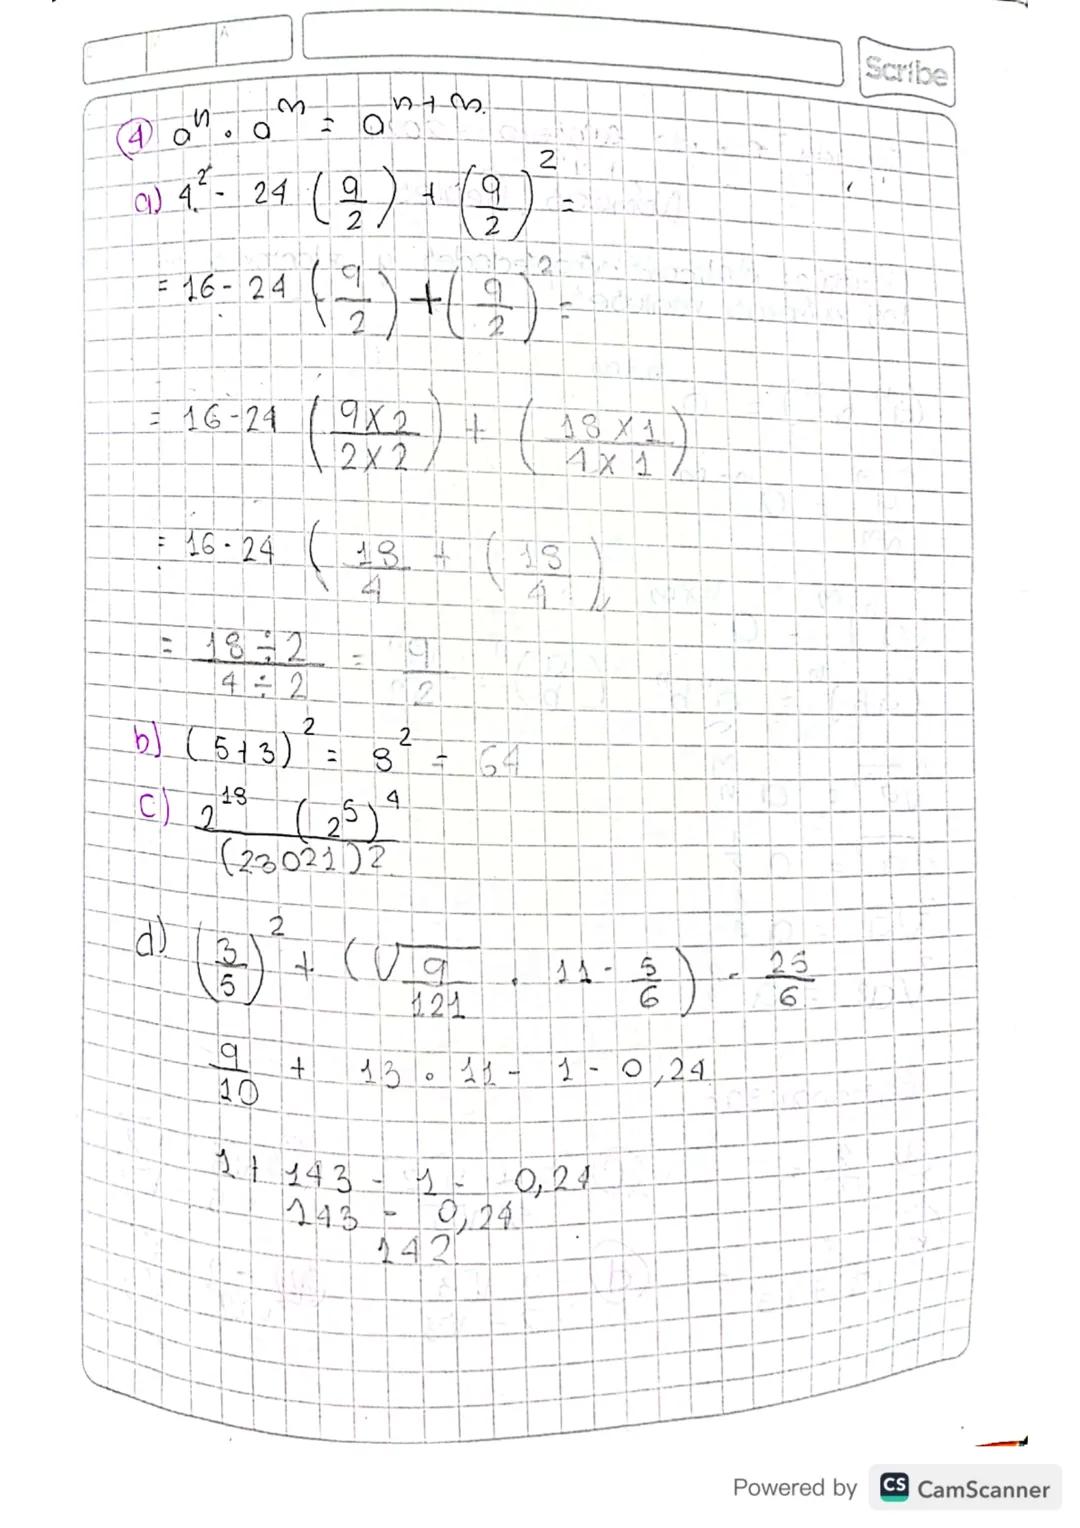 Scribe
4 aⁿ · aᵐ = aⁿ⁺ᵐ.
a) 4² - 24 (9/2) + (9/2)² =
= 16 - 24 (9/2) + (9/2)² =
= 16 - 24 (9x2/2x2) + (18x1/4x1)
= 16 - 24 (18/4 + (18/4)
= 18÷2/4÷2 = 9/2
b) (5+3)² = 8² = 64
c) 2¹⁸ (2⁵)⁴/(23021)2
d) (3/5)² + (√9/121 · 11 - 5/6) - 25/6
9/10 + 13 · 11 - 1 - 0,24
1 + 143 - 1 - 0,24
143 - 0,24
142
Powered by CS CamScanner